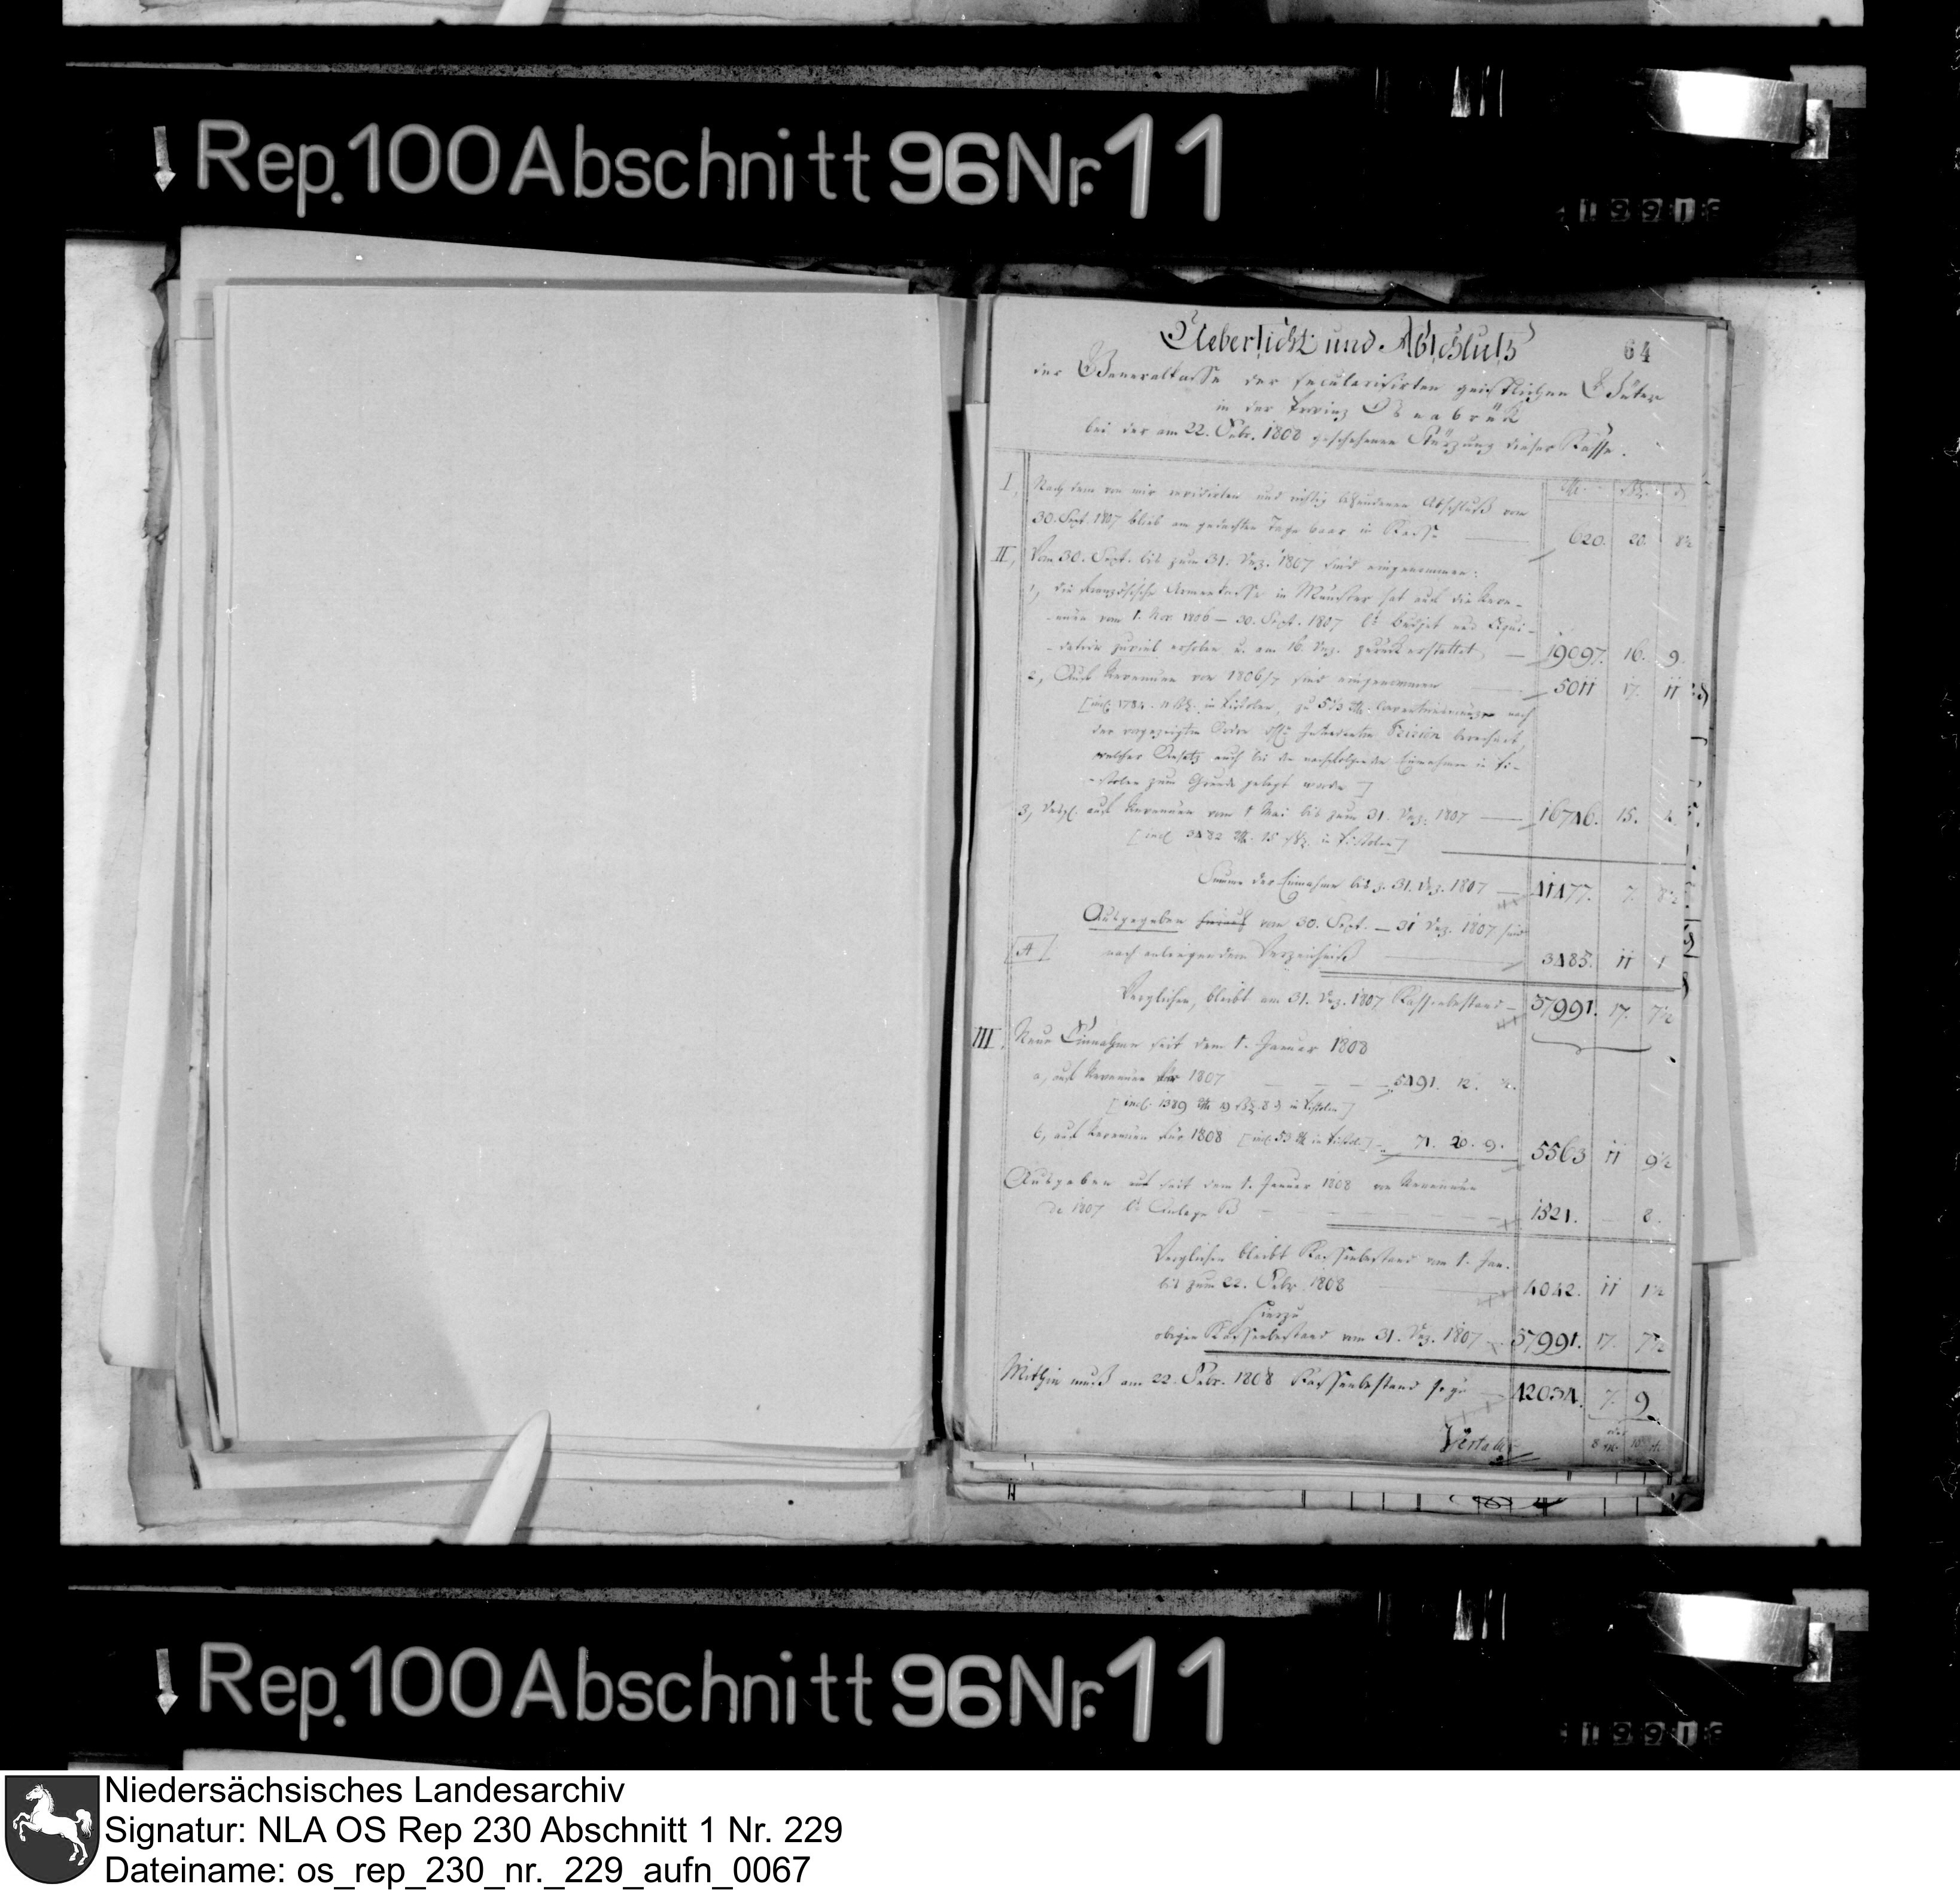 Rep. 100 Abschnitt 96 Nr. 11
1991
Uebersicht und Abschluß
64
der Generalkasse der secularisirten geistlichen Güter
in der Provinz Osnabrück
bei der am 22. Febr. 1808 geschehenen Stürzung dieser Kasse.
I, Nach dem von mir revidirten und richtig befundenen Abschluß vom
30. Sept. 1807 blieb am gedachten Tage baar in Kasse 620. 20. 8½
II, Vom 30. Sept. bis zum 31. Dez. 1807 sind eingenommen:
1, die französische Armeekasse in Münster hat auf die Reve-
nüen vom 1. Nov. 1806 — 30. Sept. 1807 lt. Budjet und Liqui-
dation zuviel erhoben u. am 16. Dez. zurück erstattet 19097. 16. 9.
2, Auf Revenüen von 1806/7 sind eingenommen 5011 17. 11
welcher Ansatz auch bei den nachfolgenden Einnahmen in Pi-
stolen zum Grunde gelegt worden]
3, desgl. auf Revenüen vom 1 Mai bis zum 31. Dez. 1807 16746. 15. 4.
[incl. 3482 Rtlr. 15 in Pistolen]
Summe der Einnahme bis z. 31. Dez. 1807 41477. 7. 8½
Ausgegeben hierauf vom 30. Sept. — 31 Dez. 1807 sind
[A] nach anliegendem Verzeichniß 3485. 11 1
Verglichen, bleibt am 31. Dez. 1807 Kassenbestand 37991. 17. 7½
III. Neue Einnahme seit dem 1. Januar 1808
a, auf Revenüen für 1807 5491. 12. ½.
[incl. 1389 in Pistolen]
b, auf Revenüen für 1808 [incl. 53 in Pistol.] 71. 20. 9. 5563 11 9½
Ausgeben auf seit dem 1. Januar 1808 von Revenüen
de 1807 lt. Anlage B 1521. — 8.
Verglichen bleibt Kassenbestand vom 1. Jan.
bis zum 22. Febr. 1808 4042. 11 1½
hierzu
obigen Kassenbestand vom 31. Dez. 1807 37991. 17. 7½
Mithin muß am 22. Febr. 1808 Kassenbestand seyn 42034. 7. 9
Rep. 100 Abschnitt 96 Nr. 11
1991
Niedersächsisches Landesarchiv
Signatur: NLA OS Rep 230 Abschnitt 1 Nr. 229
Dateiname: os_rep_230_nr._229_aufn_0067